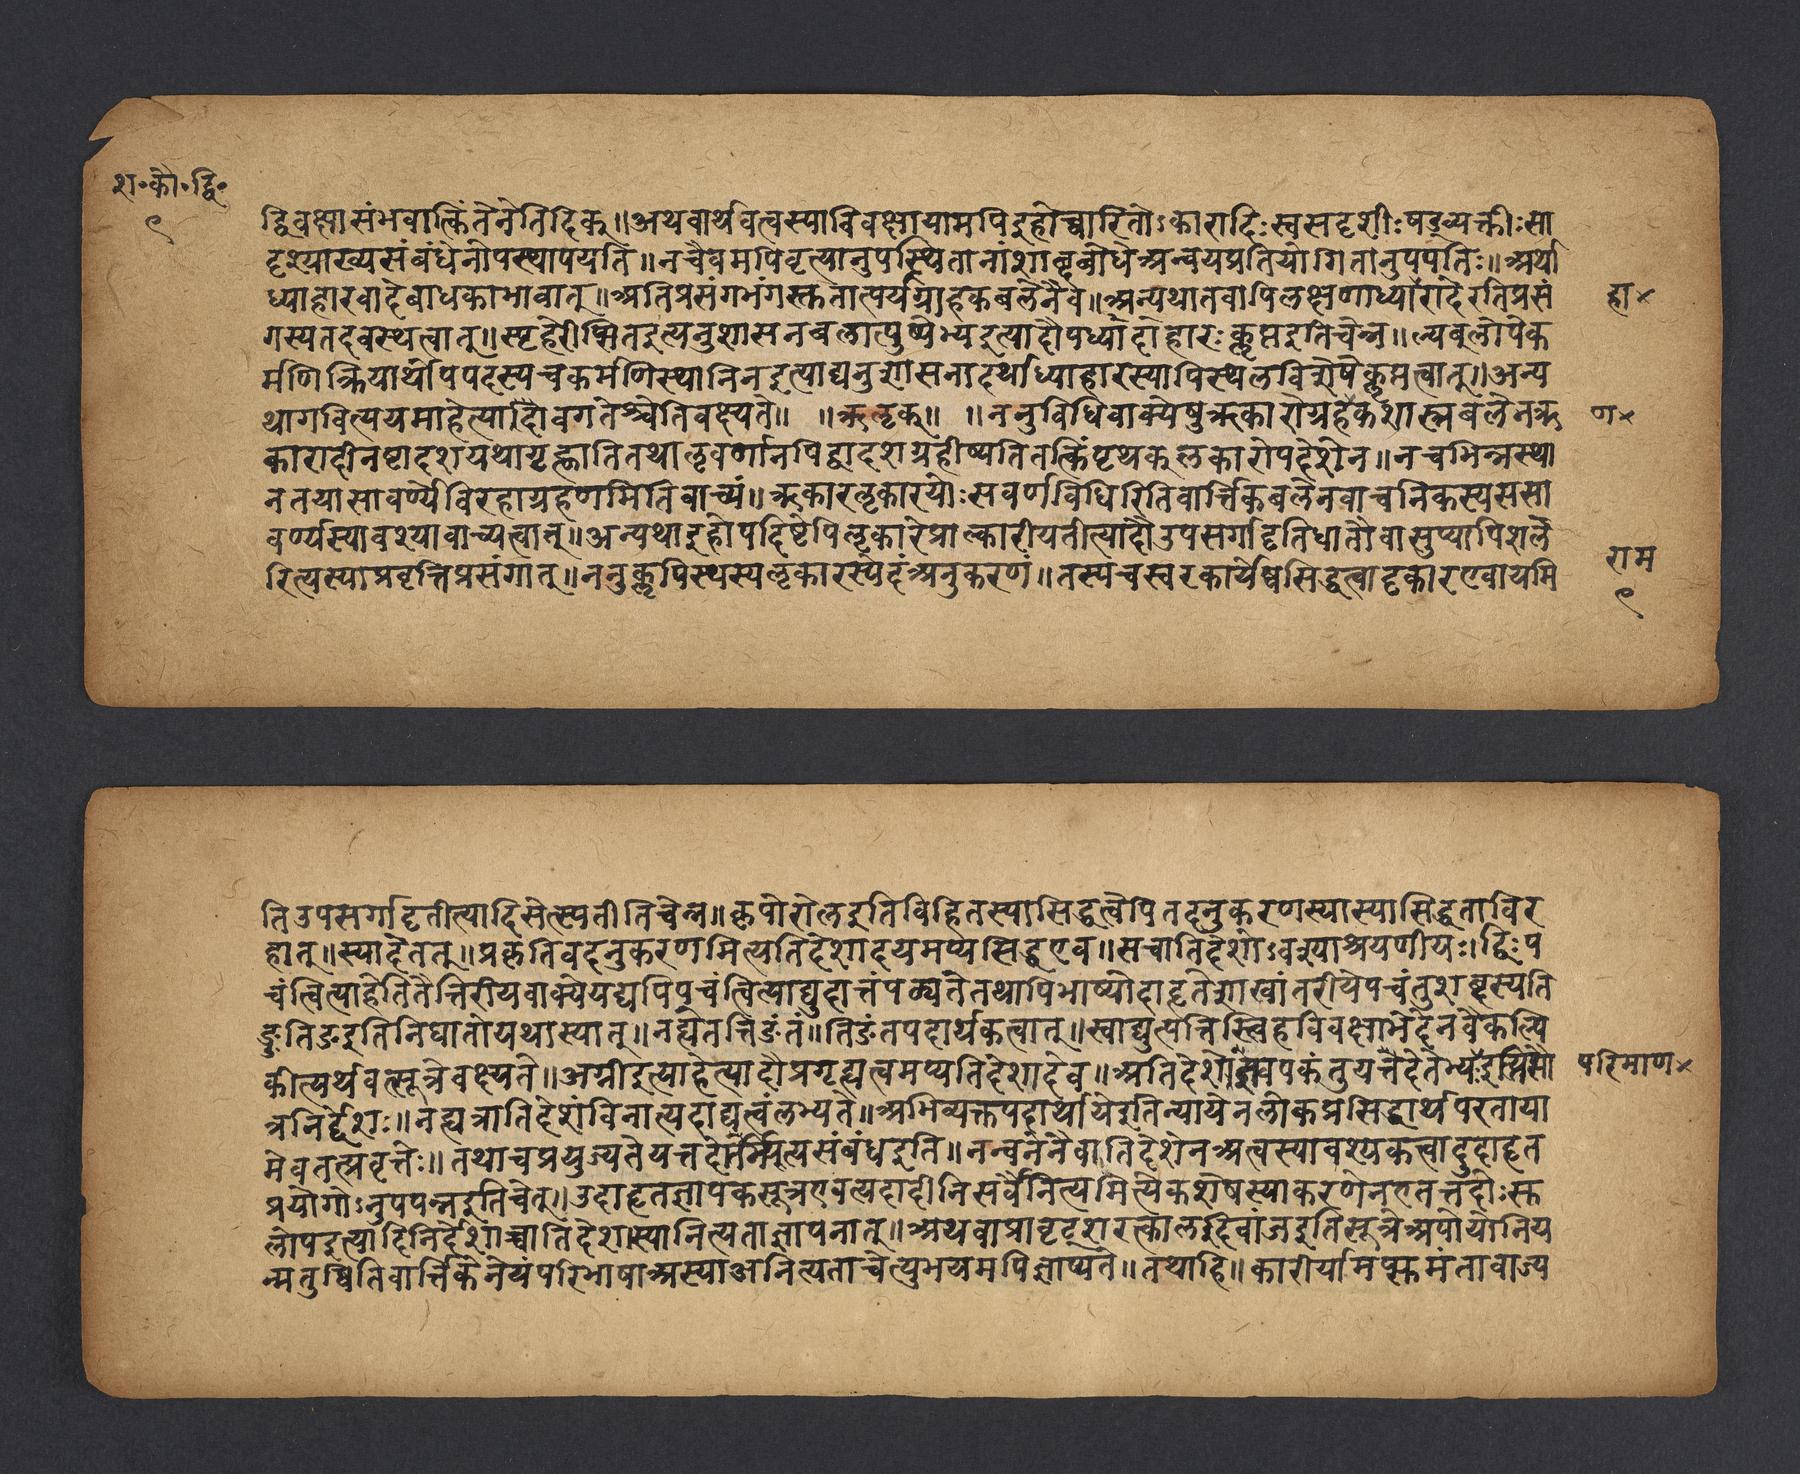 श॰कौ॰द्वि॰
९
द्विवक्षासंभवात्किंतेनेतिदिक्॥अथवार्थवत्वस्याविवक्षायामपिइहोच्चारितोऽकारादिःस्वसदृशीःषड्व्यक्तीःसा
दृश्याख्यसंबंधेनोपस्थापयति॥नचैवमपिवृत्यानुपस्थितानांशाब्दबोधेअन्वयप्रतियोगितानुपपतिः॥अर्था
ध्याहारवादेबाधकाभावात्॥अतिप्रसंगभंगस्क्ततात्पर्यग्राहकबलेनैव॥अन्यथातवापिलक्षणाध्यारादेरतिप्रसं
हा×
गस्यतदवस्थत्वात्॥स्पृहेरीप्सितइत्यनुशासनबलात्पुष्पेभ्यइत्यादौपर्थ्यादाहारःकॢप्तइतिचेन्न॥ल्यब्लोपेक
र्मणिक्रियार्थोपपदस्यचकर्मणिस्थानिनइत्याद्यनुशासनादर्थाध्याहारस्यापिस्थलविशेषेकॢप्तत्वात्॥अन्य
थागवित्ययमाहेत्यादिावगतेश्चेतिवक्ष्यते॥ ॥ऋऌक्॥ ॥ननुविधिवाक्येषुऋकारोग्रहेकशास्त्रबलेनऋ
ण×
कारादीनष्टादशयथागृह्णातितथाऌवर्णानपिद्वादशग्रहीष्यतितत्किंपृथक्ऌकारोपदेशेन॥नचभिन्नस्था
नतयासावर्ण्यविरहाग्रहणमितिवाच्यं॥ऋकारऌकारयोःसवर्णविधिरितिवार्त्तिकबलेनवाचनिकस्यससा
वर्ण्यस्यावश्यावाच्यत्वात्॥अन्यथाइहोपदिष्टेपिऌकारेप्राल्कारीयतीत्यादौउपसर्गादृतिधातौवासुप्यापिशले
रित्यस्याप्रवृत्तिप्रसंगात्॥ननुकॢपिस्थस्यऌकारस्येदंअनुकरणं॥तस्यचस्वरकार्येष्वसिद्धत्वादृकारएवायमि
राम
९
तिउपसर्गादृतीत्यादिसेत्स्यतीतिचेन्न॥कृपोरोलइतिविहितस्यासिद्धत्वेपितदनुकरणस्यास्यासिद्धताविर
हात्॥स्यादेतत्॥प्रकृतिवदनुकरणमित्यतिदेशादयमप्यसिद्धएव॥सचातिदेशोऽवश्याश्रयणीयः॥द्विःप
चंत्वित्याहेतितैत्तिरीयवाक्येयद्यपिपचंत्वित्याद्युदात्तंपठ्यतेतथापिभाष्योदाहृतेशाखांतरीयेपचंतुशब्दस्यति
ङ्ङतिङइतिनिघातोयथास्यात्॥नह्येतत्तिङंतं॥तिङंतपदार्थकत्वात्॥स्वाद्युत्पत्तिस्त्विहविवक्षाभेदेनवैकल्पि
कीत्यर्थवत्सूत्रेवक्ष्यते॥अग्नीइत्याहेत्यादौप्रगृह्यत्वमप्यतिदेशादेव॥अतिदेशेज्ञापकंतुयत्तदेतेभ्यइति
परिमाण×
त्रनिर्द्देशः॥नह्यत्रातिदेशंविनात्यदाद्यत्वंलभ्यते॥अभिव्यक्तपदार्थायेइतिन्यायेनलोकप्रसिद्धार्थपरताया
मेवतत्प्रवृत्तेः॥तथाचप्रयुज्यतेयत्तदोर्नित्यसंबंधइति॥नन्वनेनैवातिदेशेनअत्वस्यावश्यकत्वादुदाहृत
प्रयोगोऽनुपपन्नइतिचेत्॥उदाहृतज्ञापकसूत्रएवत्यदादीनिसर्वैर्नित्यमित्येकशेषस्याकरणेनएतत्तदोःस्क
लोपइत्यादिनिर्देशाच्चातिदेशस्यानित्यताज्ञापनात्॥अथवाप्रावृट्शरत्कालदिवांजइतिसूत्रेअपोयोनिय
न्मतुष्वितिवार्त्तिकेनेयंपरिभाषाअस्याअनित्यताचेत्युभयमपिज्ञाप्यते॥तथाहि॥कारीर्यामप्स्कमंतावाज्य